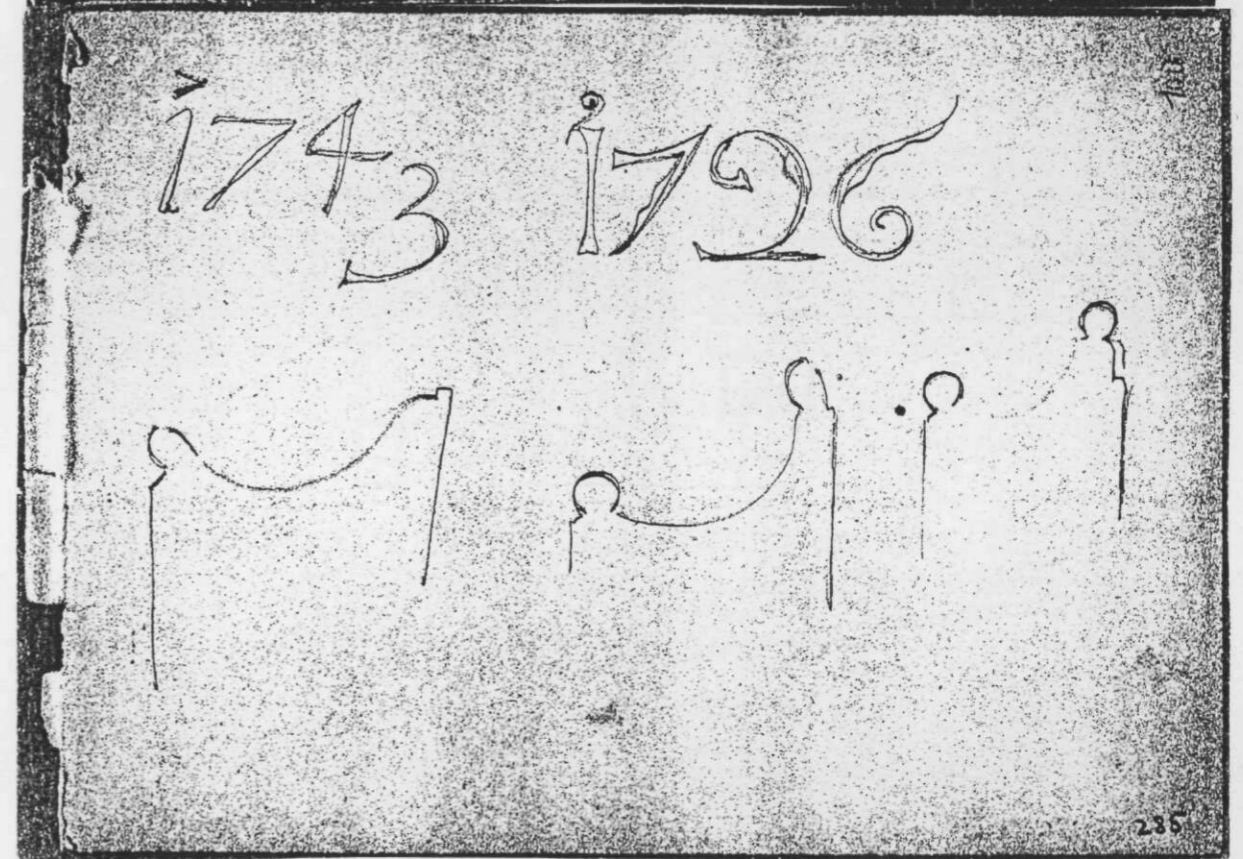 1743 1726
285